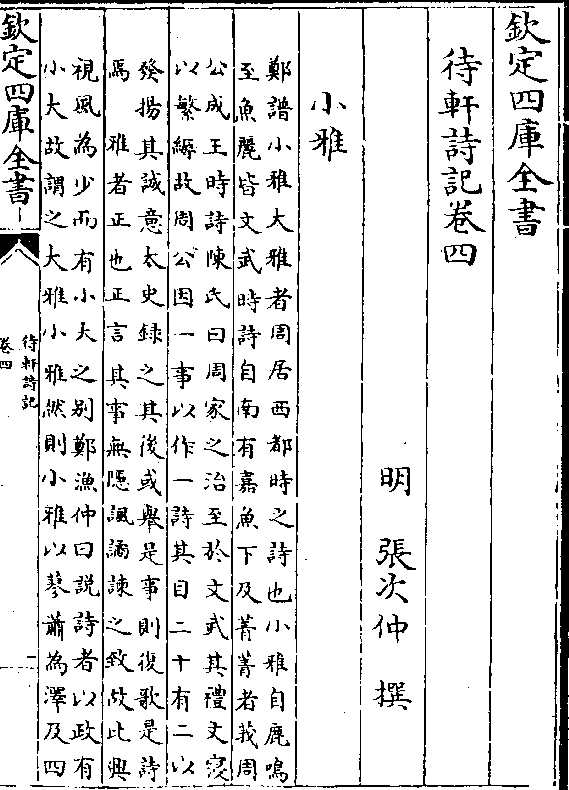 欽定四庫全書
待軒詩記卷四
明　張次仲　撰
小雅
鄭譜小雅大雅者周居西都時之詩也小雅自鹿鳴
至魚麗皆文武時詩自南有嘉魚下及菁菁者莪周
公成王時詩陳氏曰周家之治至於文武其禮文寖
以繁縟故周公因一事以作一詩其目二十有二以
發揚其誠意太史録之其後或舉是事則復歌是詩
焉　雅者正也正言其事無隱諷譎諫之致故此興
視風為少而有小大之别鄭漁仲曰説詩者以政有
小大故謂之大雅小雅然則小雅以蓼蕭為澤及四
欽定四庫全書
待軒詩記
卷四
一